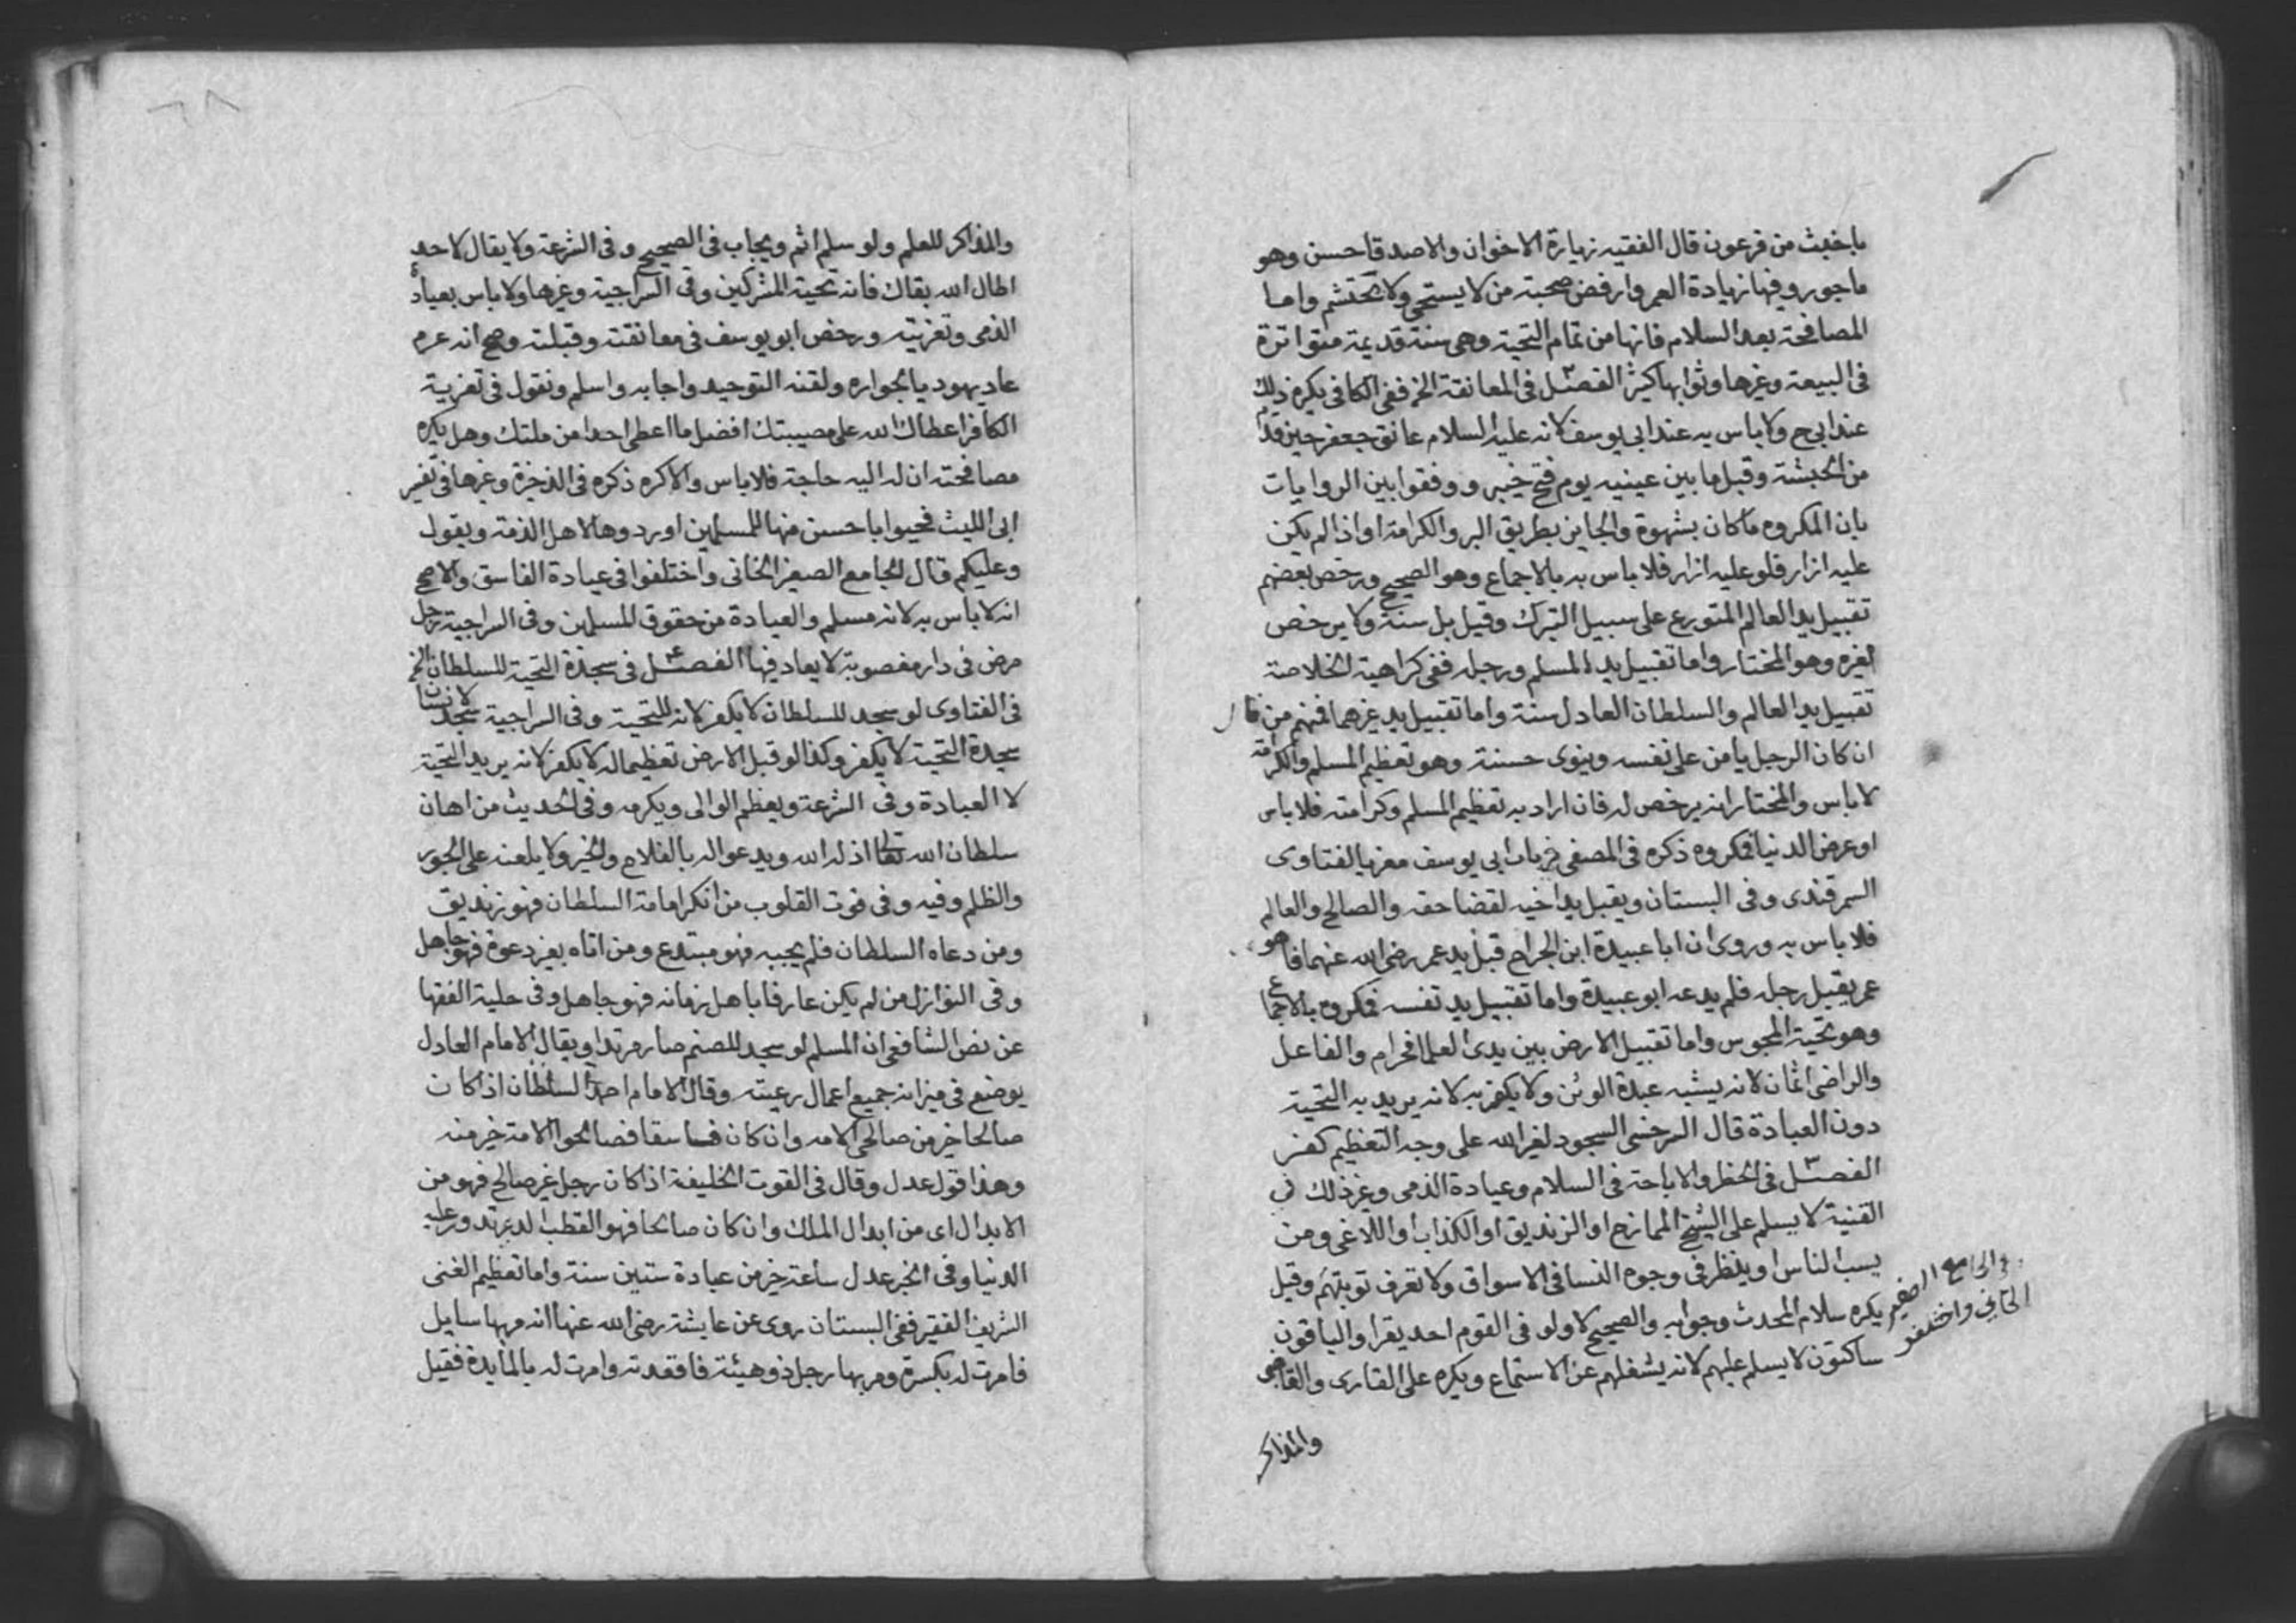 باخبث من فرعون قال الفقيه زيارة الاخوان والاصدقا حسن وهو
ماجور وفيها زيادة العمر وارفض صحبة من لا يستحي ولا يحتشم واما
المصافحة بعد السلام فانها من تمام التحية وهي سنة قديمة متواترة
في البيعة وغيرها وثوابها كثير الفصل في المعانقة الخ ففي الكافي يكره ذلك
عند ابي ح ولا باس به عند ابي يوسف لانه عليه السلام عانق جعفر حين قدم
من الحبشة وقبل ما بين عينيه يوم فتح خيبر ووفقوا بين الروايات
بان المكروه ما كان بشهوة والجايز بطريق البر والكرامة او اذا لم يكن
عليه ازار فلو عليه ازار فلا باس به بالاجماع وهو الصحيح ورخص بعضهم
تقبيل يد العالم المتورع على سبيل التبرك وقيل بل سنة ولا يرخص
لغيره وهو المختار واما تقبيل يد المسلم ورجله ففي كراهية الخلاصة
تقبيل يد العالم والسلطان العادل سنة واما تقبيل يد غيرهما فمنهم من قال
ان كان الرجل يامن على نفسه وينوي حسنة وهو تعظيم المسلم واكرامه
لا باس والمختار انه يرخص له فان اراد به تعظيم المسلم وكرامته فلا باس
او عرض الدنيا فمكروه ذكره في المصفى في باب ابي يوسف معزيا لفتاوى
السمرقندى وفي البستان ويقبل يد اخيه لقضا حقه والصالح والعالم
فلا باس به وروى ان ابا عبيدة ابن الجراح قبل يد عمر رضى الله عنهما فاهو
عمر يقبل رجله فلم يدعه ابو عبيدة واما تقبيل يد نفسه فمكروه بالاجماع
وهو تحية المجوس واما تقبيل الارض بين يدى العلما فحرام والفاعل
والراضى اثمان لانه يشبه عبدة الوثن ولا يكفر به لانه يريد به التحية
دون العبادة قال السرخسى السجود لغير الله على وجه التعظيم كفر
الفصل في الحظر والاباحة في السلام وعيادة الذمى وغير ذلك في
القنية لا يسلم على الشيخ الممازح او الزنديق او الكذاب او اللاغى ومن
يسب الناس او ينظر في وجوه النسا في الاسواق ولا تعرف توبتهم وقيل
يكره سلام المحدث وجوابه والصحيح لا ولو في القوم احد يقرا والباقون
ساكتون لا يسلم عليهم لانه يشغلهم عن الاستماع ويكره على القارى والقاضي
في الجامع الصغير
الخاني واختلفو
والمذاكر
والمذاكر للعلم ولو سلم اثم ويجاب في الصحيح وفي الشرعة ولا يقال لاحد
اطال الله بقاك فانه تحية المشركين وفي السراجية وغيرها ولا باس بعيادة
الذمى وتعزيته ورخص ابو يوسف في معانقته وقبلته وصح انه عرم
عاد يهوديا بجواره ولقنه التوحيد واجابه واسلم ونقول في تعزية
الكافر اعطاك الله على مصيبتك افضل ما اعطى احدا من ملتك وهل يكره
مصافحته ان له اليه حاجة فلا باس والا كره ذكره في الذخيرة وغيرها في تفسير
ابى الليث فحيوا باحسن منها للمسلمين او ردوها لاهل الذمة ويقول
وعليكم قال الجامع الصغير الخانى واختلفوا في عيادة الفاسق والاصح
انه لا باس به لانه مسلم والعيادة من حقوق المسلمين وفي السراجية رجل
مرض في دار مغصوبة لا يعاد فيها الفصل في سجدة التحية للسلطان الخ
في الفتاوى لو سجد للسلطان لا يكفر لانه للتحية وفي السراجية سجد لانسان
سجدة التحية لا يكفر وكذا لو قبل الارض تعظيما له لا يكفر لانه يريد التحية
لا العبادة وفي الشرعة ويعظم الوالى ويكرمه وفي الحديث من اهان
سلطان الله تعالى اذله الله ويدعو اله بالفلاح والخير ولا يلعنه على الجور
والظلم وفيه وفي قوت القلوب من انكر امامة السلطان فهو زنديق
ومن دعاه السلطان فلم يجبه فهو مبتدع ومن اتاه بغير دعوة فهو جاهل
وفي النوازل من لم يكن عارفا باهل زمانه فهو جاهل وفي حلية الفقها
عن نص الشافعى ان المسلم لو سجد للصنم صار مرتدا ويقال الامام العادل
يوضع في ميزانه جميع اعمال رعيته وقال الامام احمد السلطان اذا كان
صالحا خير من صالحى الامه وان كان فاسقا فصالحوا الامة خير منه
وهذا قول عدل وقال في القوت الخليفة اذا كان رجل غير صالح فهو من
الابدال اى من ابدال الملك وان كان صالحا فهو القطب الذى تدور عليه
الدنيا وفي الخبر عدل ساعة خير من عبادة ستين سنة واما تعظيم الغنى
الشريف الفقير ففي البستان روى عن عايشة رضى الله عنها انه مر بها سايل
فامرت له بكسرة ومر بها رجل ذو هيئة فاقعدته وامرت له بالمايدة فقيل